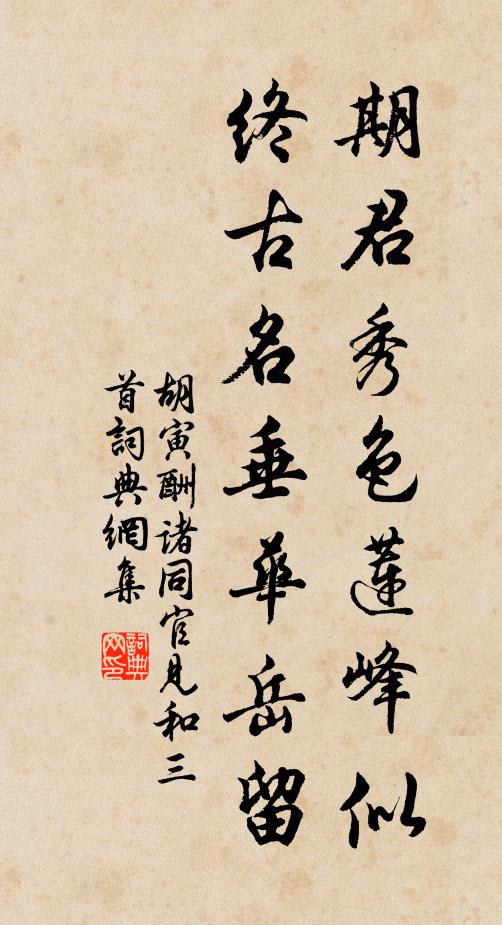 期君秀色蓮峰似
終古名垂華岳留
胡寅酬諸同官見和三
首詞典網集
詞典
网印